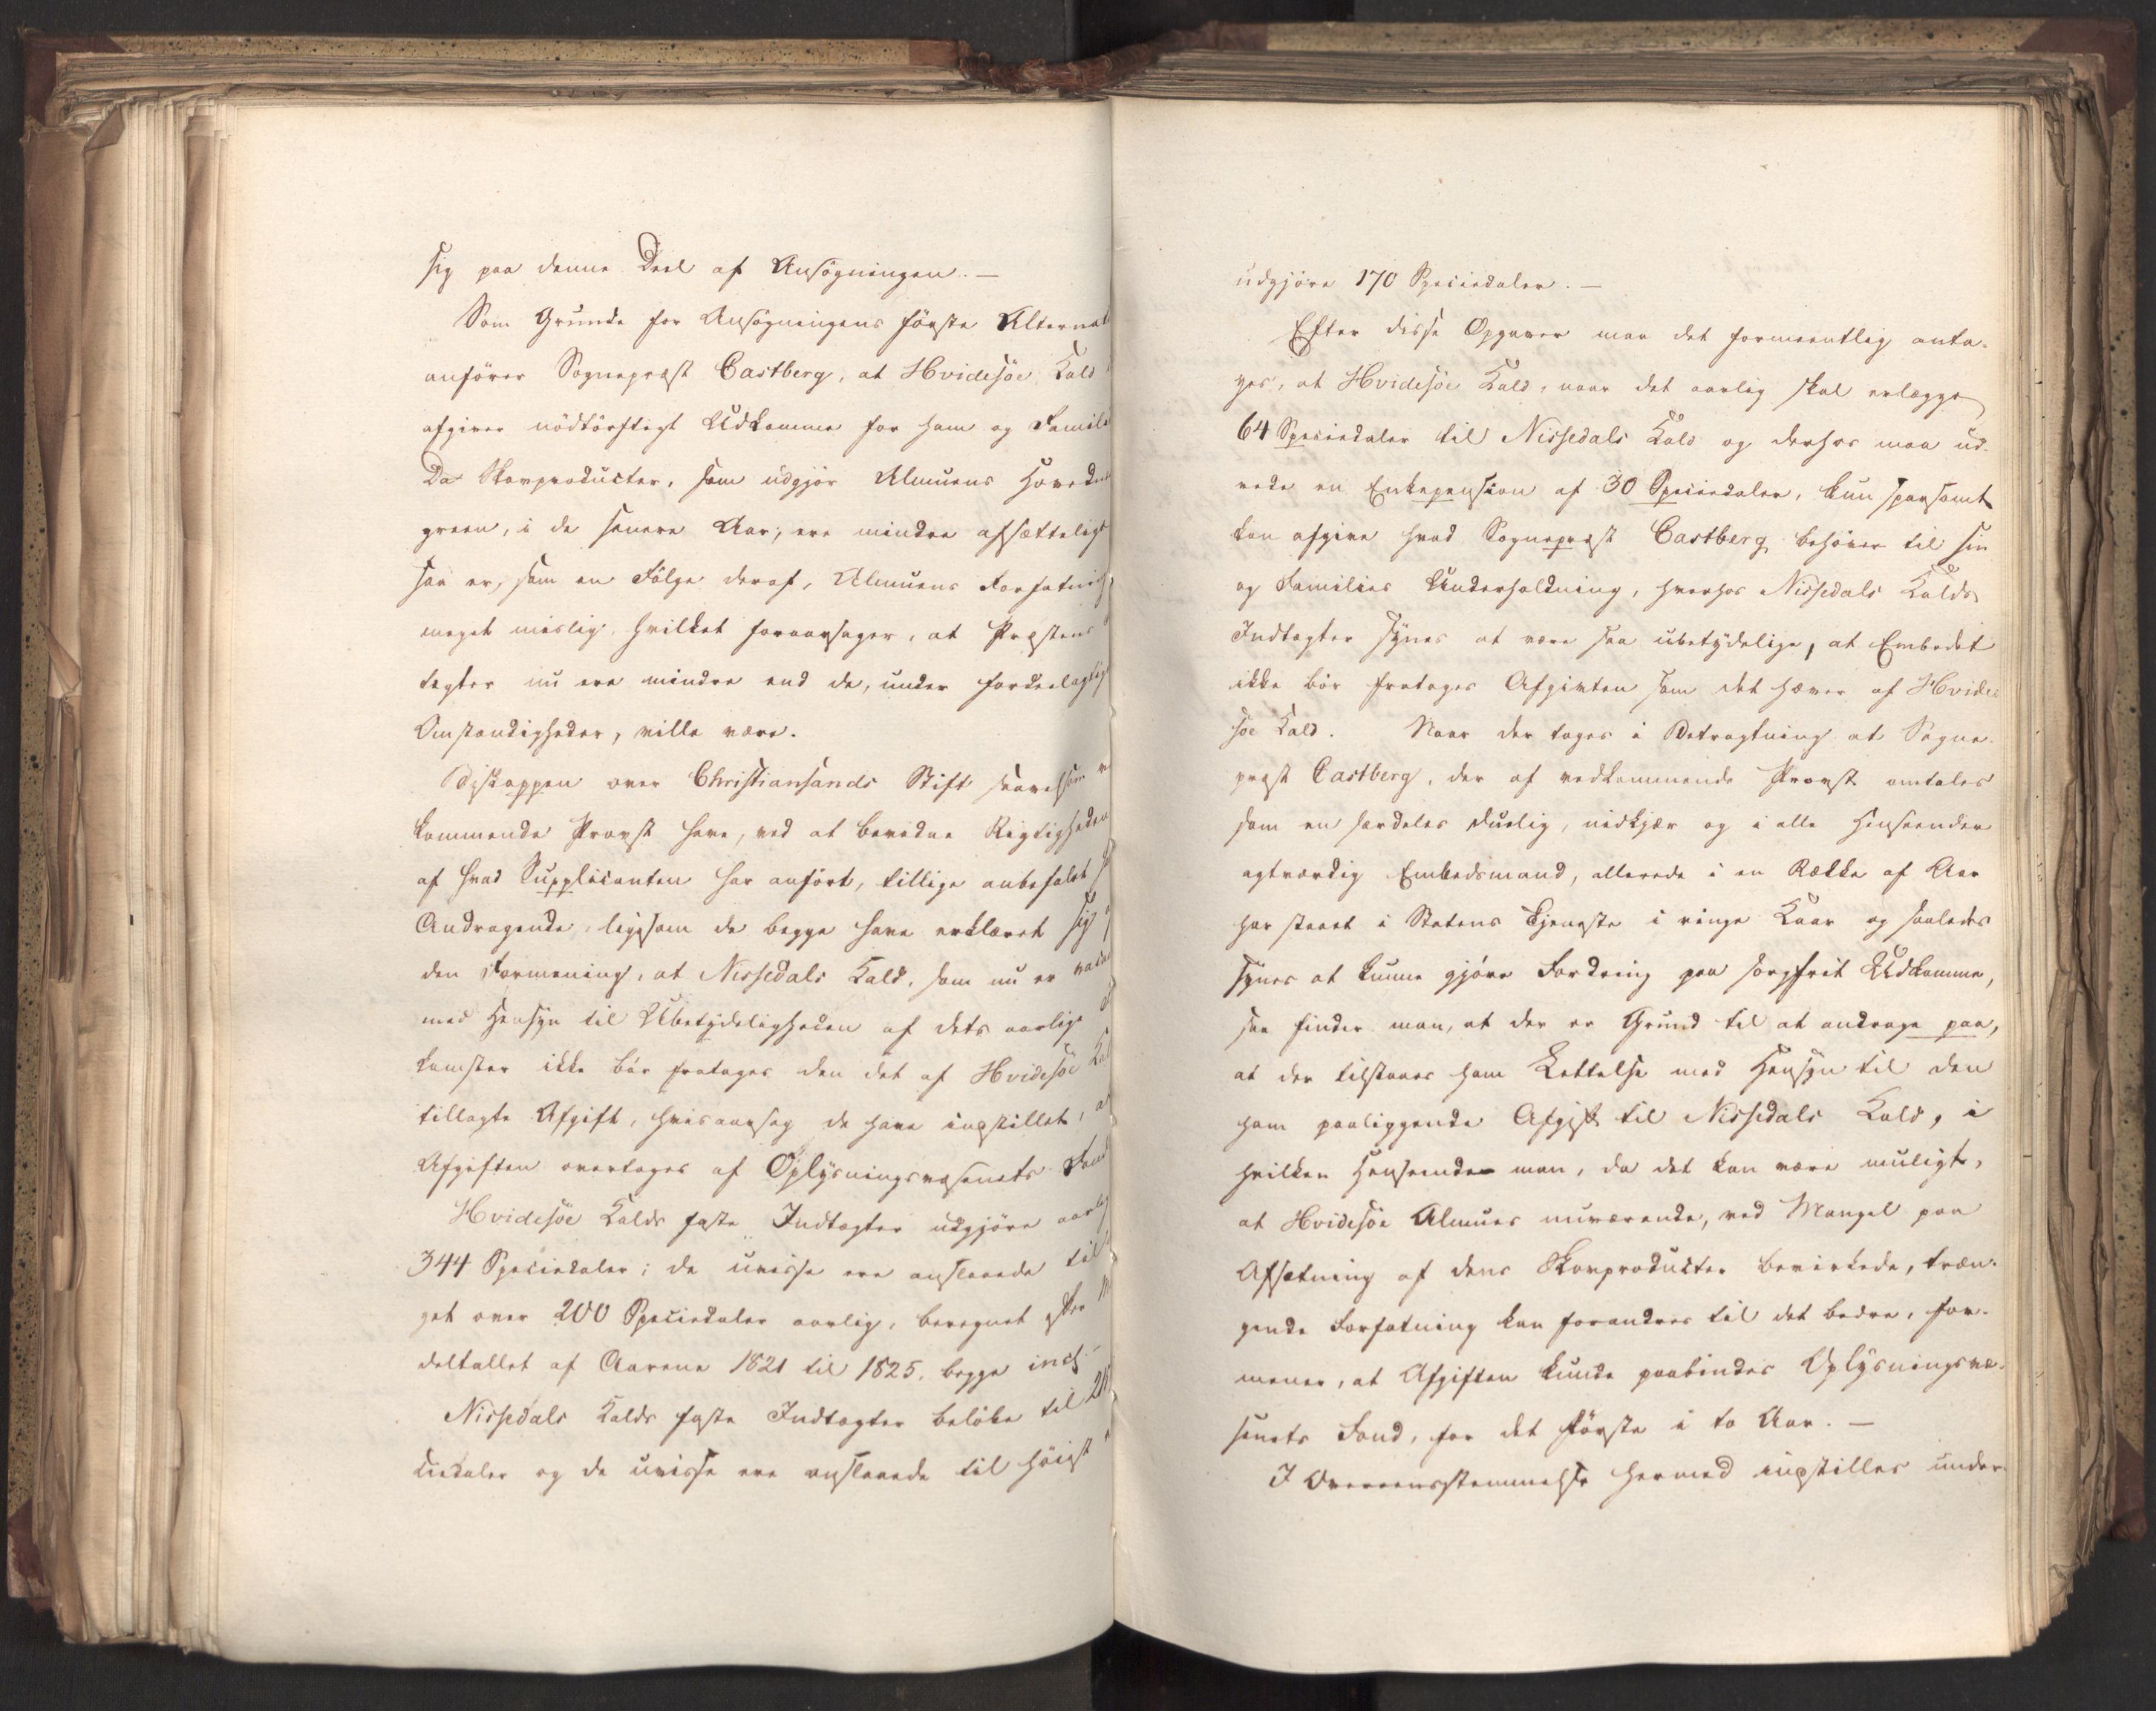 sig paa denne Deel af Ansögningen. —
Som Grunde for Ansögningens förste Alternat
anförer Sognepræst Castberg, at Hvidesöe Kald
afgiver nödtörftigt Udkomme for ham og Famili
Da Skovproducter, som udgjör Almuens Hoved
green, i de senere Aar, ere mindre afsættelige
saa er, som en Fölge deraf, Almuens Forfatning
meget mislig, hvilket foraarsager, at Præstens
tegter nu ere mindre end de, under fordeelagtige
Omstændigheder, ville være.
Biskoppen over Christiansands Stift saavelsom v
kommende Provst have, ved at bevidne Rigtigheden
af hvad Supplicanten har anfört, tillige anbefalet
Andragende, ligesom de begge have erklæret sig
den Formening, at Nissedals Kald, som nu er vaca
med Hensyn til Ubetydeligheden af dets aarlige
komster ikke bör fratages den det af Hvidesöe Kal
tillagte Afgift, hvisaarsag de have indstillet, at
Afgiften overtages af Oplysningsvæsenets Fond
Hvidesöe Kalds faste Indtægter udgjöre aarlig
344 Speciedaler; de uvisse ere anslaaede til
get over 200 Speciedaler aarlig, beregnet efter M
deltallet af Aarene 1821 til 1825, begge incl.
Nissedals Kalds faste Indtægter belöbe til 2
ciedaler og de uvisse ere anslaaede til höist
udgjöre 170 Speciedaler. —
Efter disse Opgaver maa det formeentlig anta-
ges, at Hvidesöe Kald, naar det aarlig skal erlægge
64 Speciedaler til Nissedals Kald og derhos maa ud-
rede en Enkepension af 30 Speciedaler, kun sparsomt
kan afgive hvad Sognepræst Castberg behöver til sin
og Families Underholdning, hvorhos Nissedals Kalds
Indtægter synes at være saa ubetydelige, at Embedet
ikke bör fratages Afgivten som det hæver af Hvide-
söe Kald. Naar der tages i Betragtning at Sogne-
præst Castberg, der af vedkommende Provst omtales
som en særdeles duelig, nidkjær og i alle Henseender
agtværdig Embedsmand, allerede i en Række af Aar
har staaet i Statens Tjeneste i ringe Kaar og saaledes
synes at kunne gjöre Fordring paa sorgfrit Udkomme,
saa finder man, at der er Grund til at andrage paa,
at der tilstaaes ham Lettelse med Hensyn til den
ham paaliggende Afgift til Nissedals Kald, i
hvilken Henseende man, da det kan være muligt,
at Hvidesöe Almues nuværende, ved Mangel paa
Afsætning af dens Skovproducter bevirkede, træn-
gende Forfatning kan forandres til det bedre, for-
mener, at Afgiften kunde paabindes Oplysningsvæ-
senets Fond, for det förste i to Aar. —
I Overeensstemmelse hermed indstilles under-